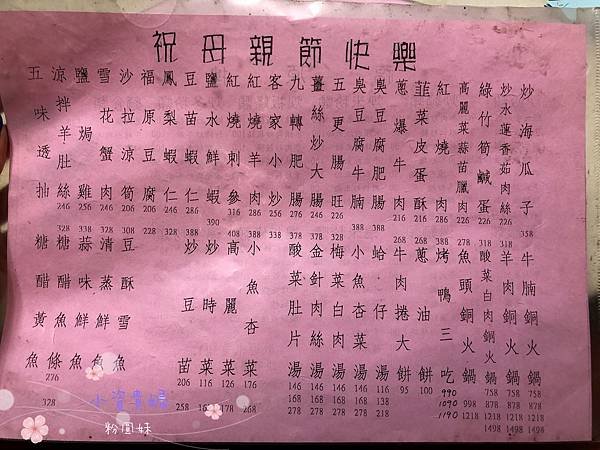 祝母親節快樂
炒海瓜子 358
炒水蓮香菇肉絲 226 328
綠竹筍鹹蛋 226 318
高麗菜蒜苗臘肉 226 278
紅燒肉 268 388
韮菜皮蛋酥 216 288
蔥爆牛肉 216 268
臭豆腐肥腸 388
臭豆腐牛腩 388
五更腸旺 226 328
薑絲炒大腸 246 328
九轉肥腸 276 388
客家小炒 256 328
紅燒羊肉 286 388
紅燒刺參 316 408
鹽水鮮蝦 390
豆苗蝦仁 286 328
鳳梨蝦仁 246 328
福原豆腐 206 228
沙拉涼筍 206 308
雪花蟹肉 246 338
鹽焗雞 256 328
涼拌羊肚絲 246 328
五味透抽
牛腩銅火鍋 758 1098 1218 1498
羊肉銅火鍋 758 1098 1218 1498
酸菜白肉銅火鍋 758 878 1218
魚頭銅火鍋 998 1218
烤鴨三吃 990 1090 1190
蔥油餅 100
牛肉捲大餅 95
蛤仔湯 116 138
小魚杏菜湯 146 168 218
梅菜白肉湯 146 168 278
金針肉絲湯 146 168 278
酸菜肚片湯 146 168 278
小魚杏菜 176 268
高麗菜 126 178
炒時菜 116 168
炒豆苗 206 258
豆酥雪魚
清蒸鮮魚
蒜味鮮魚
糖醋魚條 276 328
糖醋黃魚
小資貴婦
粉圓妹